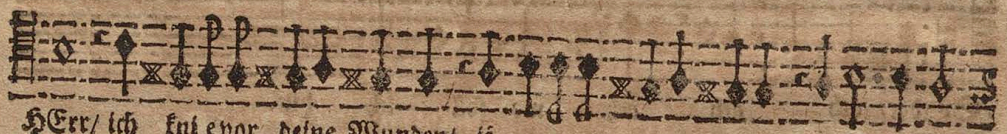 HErr/ ich knie vor deine Wunden/